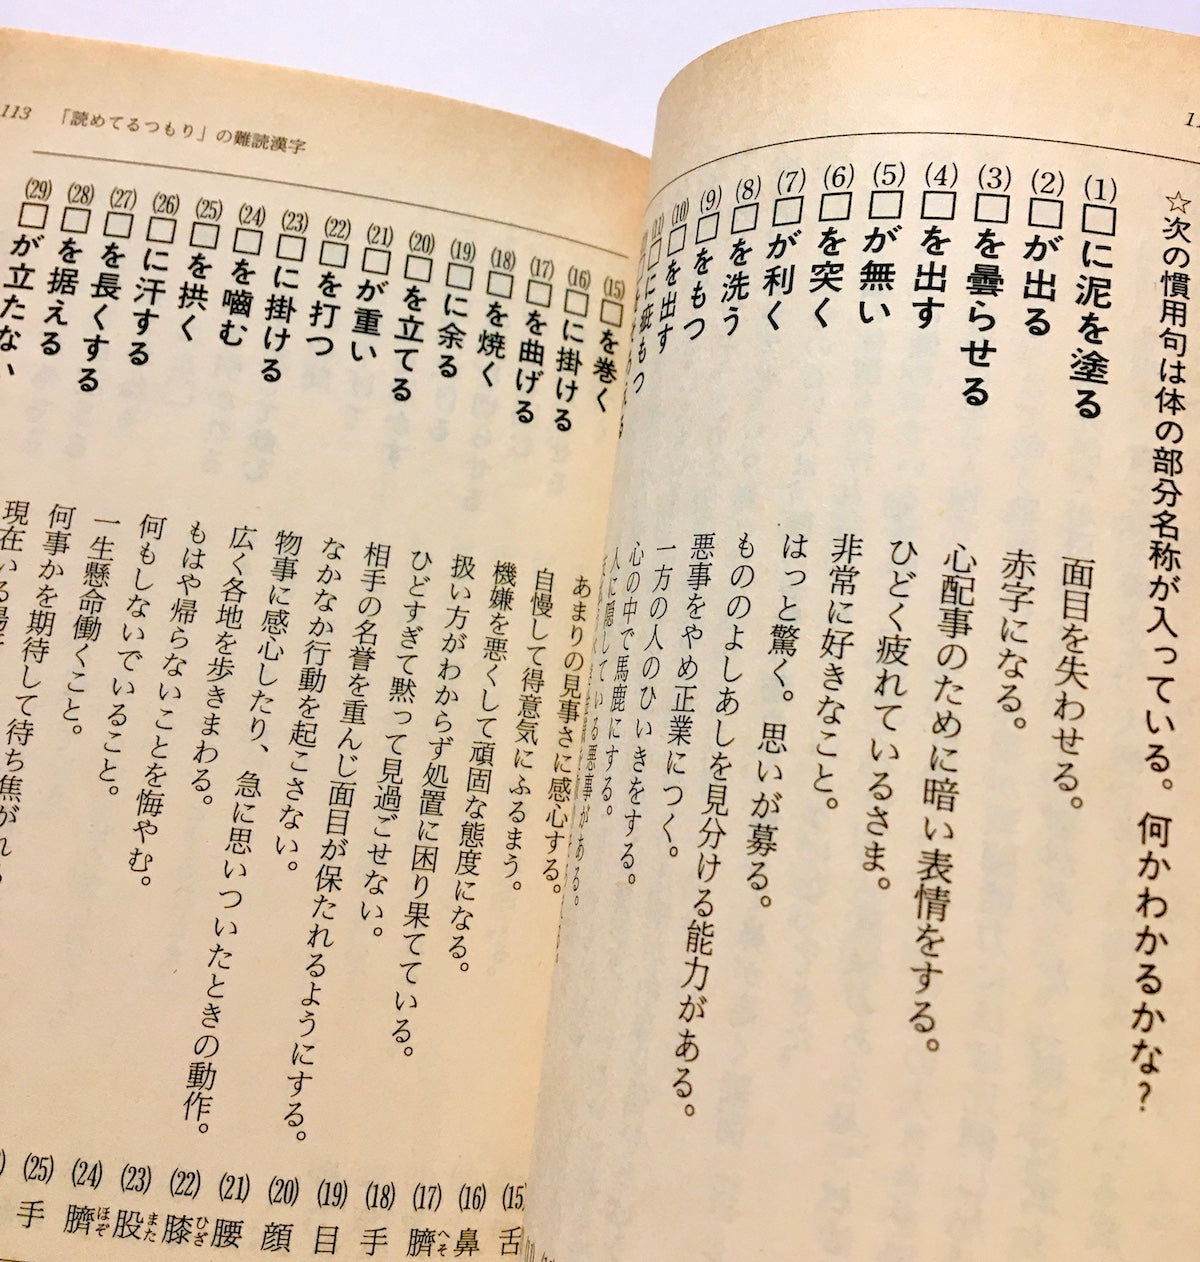 ☆次の慣用句は体の部分名称が入っている。何かわかるかな？
(1)□に泥を塗る
面目を失わせる。
(2)□が出る
赤字になる。
(3)□を曇らせる
心配事のために暗い表情をする。
(4)□を出す
ひどく疲れているさま。
(5)□が無い
非常に好きなこと。
(6)□を突く
はっと驚く。思いが募る。
(7)□が利く
もののよしあしを見分ける能力がある。
(8)□を洗う
悪事をやめ正業につく。
(9)□をもつ
一方の人のひいきをする。
(10)□を出す
心の中で馬鹿にする。
(11)□に疵もつ
人に隠している悪事がある。
113 「読めてるつもり」の難読漢字
(15)□を巻く
あまりの見事さに感心する。
(16)□に掛ける
自慢して得意気にふるまう。
(17)□を曲げる
機嫌を悪くして頑固な態度になる。
(18)□を焼く
扱い方がわからず処置に困り果てている。
(19)□に余る
ひどすぎて黙って見過ごせない。
(20)□を立てる
相手の名誉を重んじ面目が保たれるようにする。
(21)□が重い
なかなか行動を起こさない。
(22)□を打つ
物事に感心したり、急に思いついたときの動作。
(23)□に掛ける
広く各地を歩きまわる。
(24)□を嚙む
もはや帰らないことを悔やむ。
(25)□を拱く
何もしないでいること。
(26)□に汗する
一生懸命働くこと。
(27)□を長くする
何事かを期待して待ち焦がれ
(28)□を据える
現在いる場
(29)□が立たない
(15)舌
(16)鼻
(17)臍へそ
(18)手
(19)目
(20)顔
(21)腰
(22)膝ひざ
(23)股また
(24)臍ほぞ
(25)手